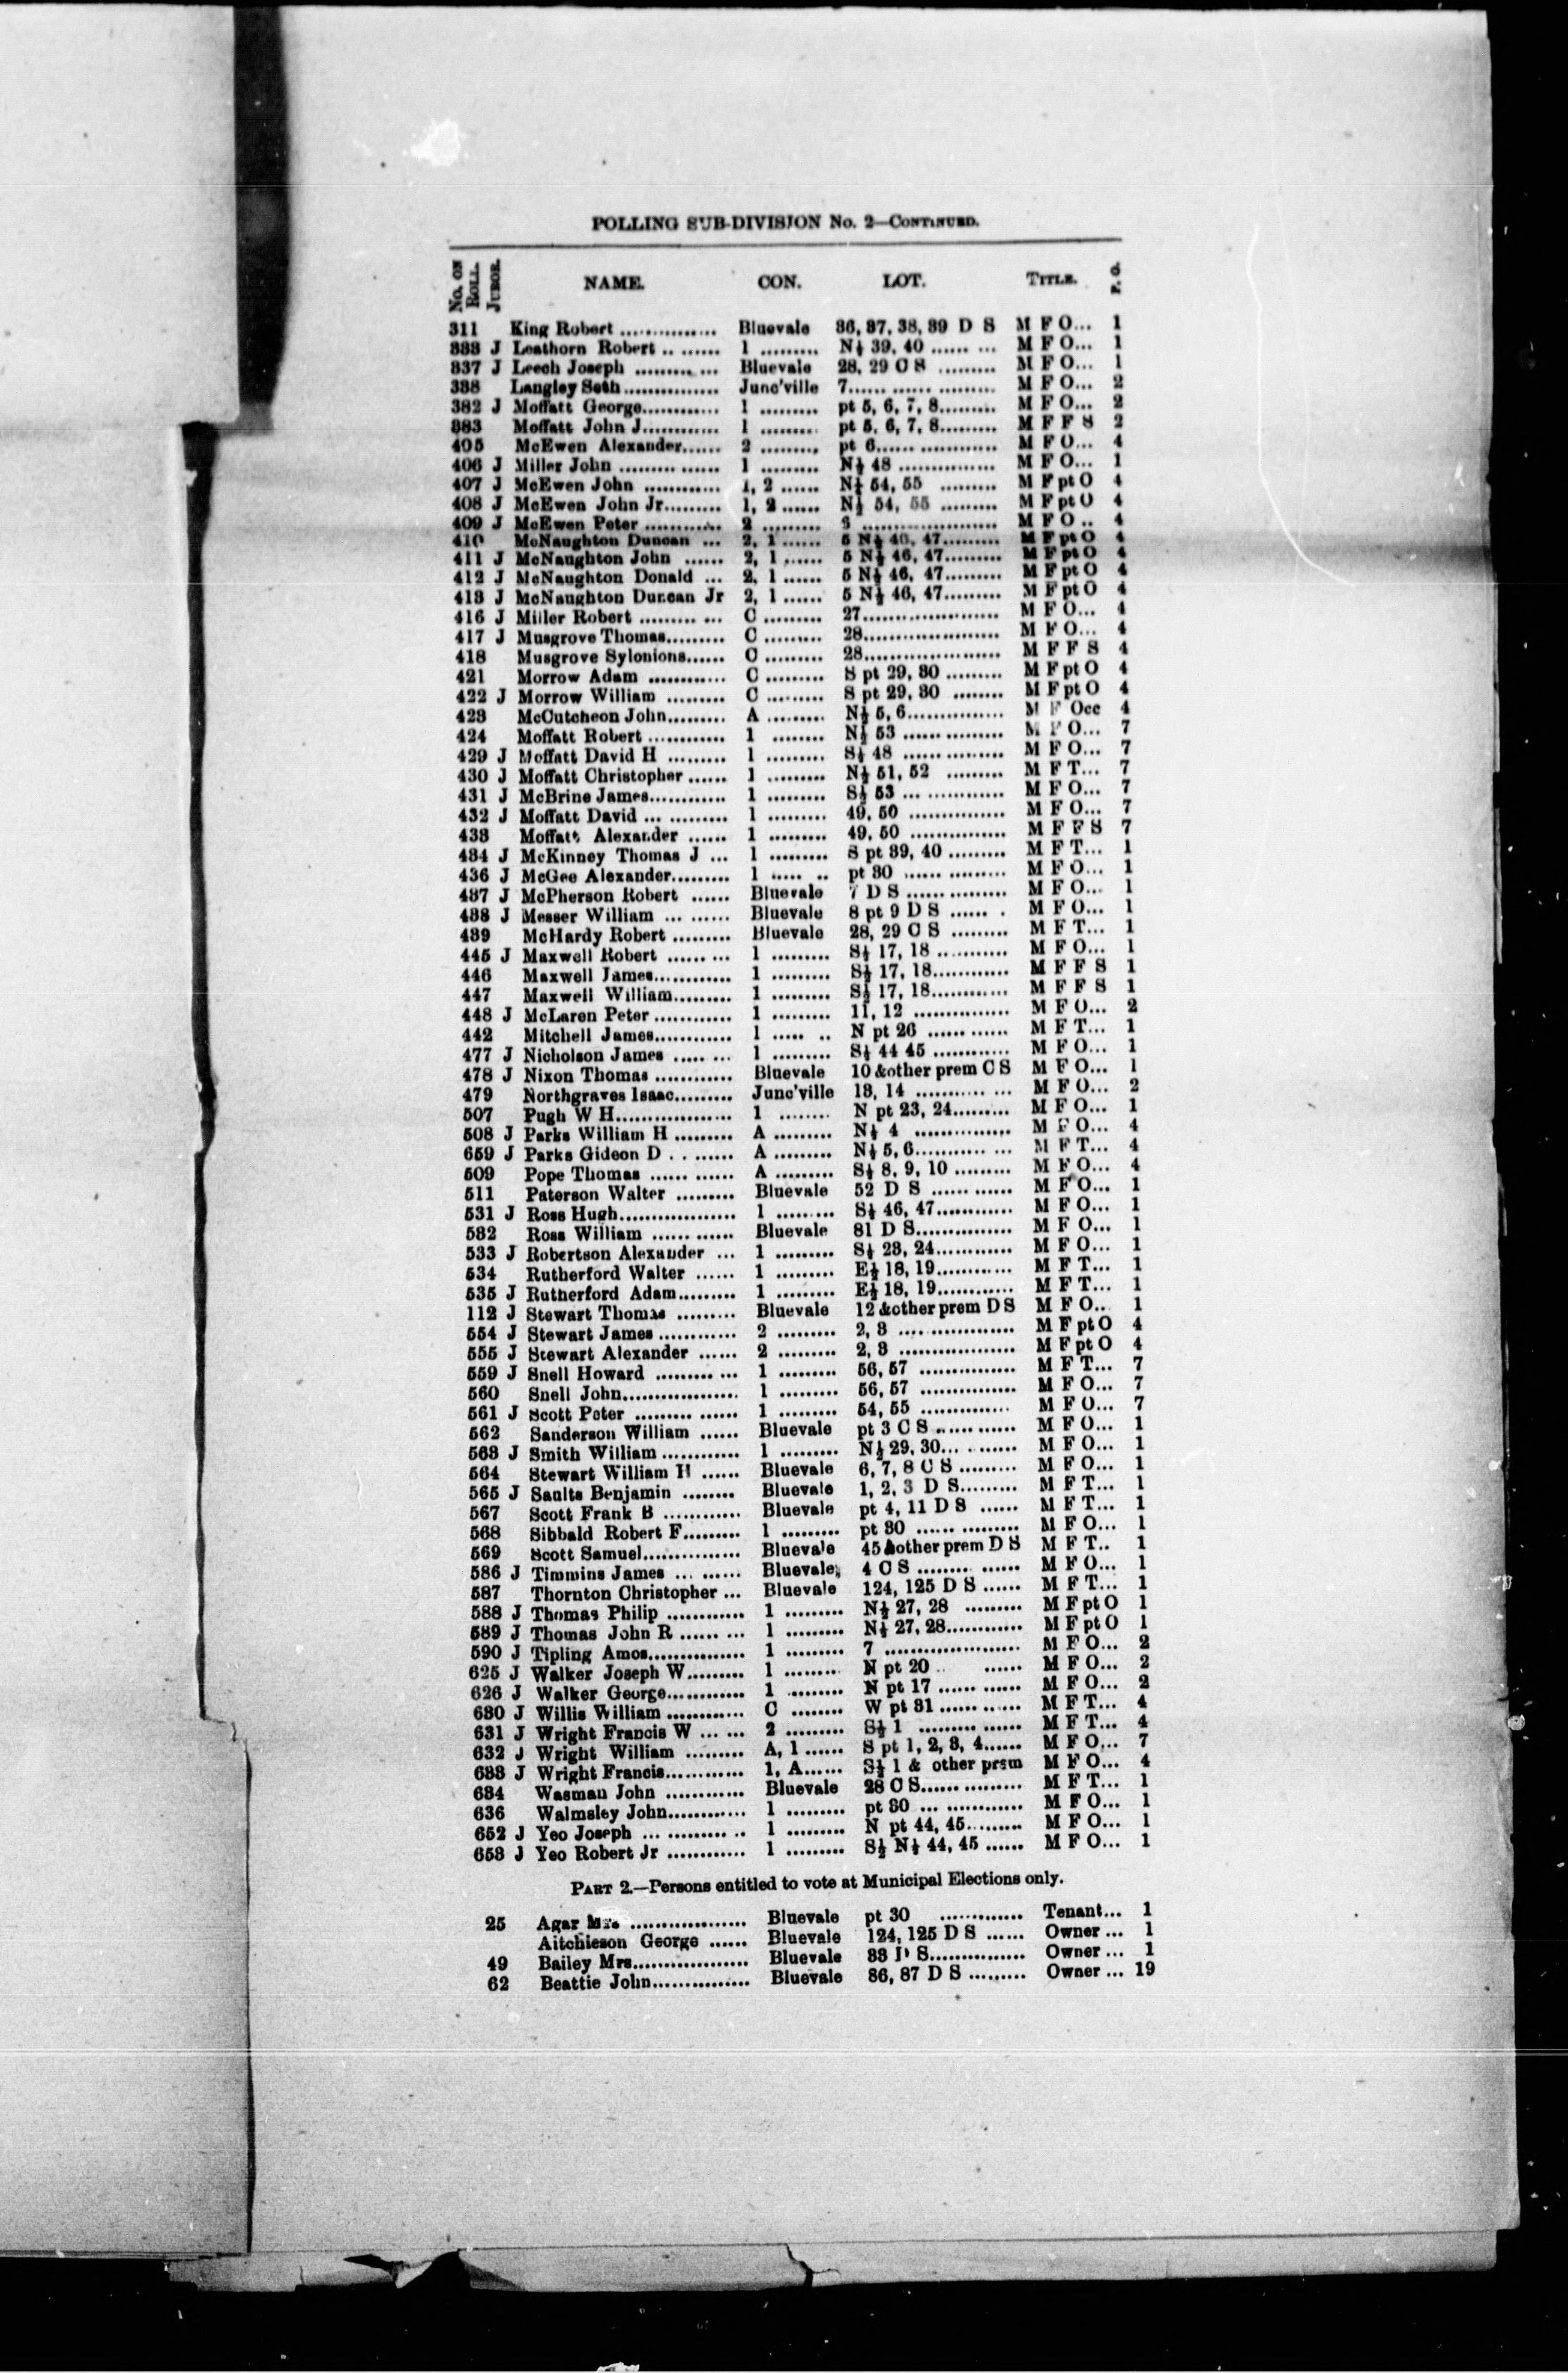 POLLING SUB-DIVISION No. 2—CONTINUED.
No. ON ROLL. JUROR. NAME. CON. LOT. TITLE. P. O.
311 King Robert ............... Bluevale 36, 37, 38, 39 D S M F O... 1
333 J Leathorn Robert ........ 1 ......... N½ 39, 40 ......... M F O... 1
337 J Leech Joseph ............ Bluevale 28, 29 C S ......... M F O... 1
338 Langley Seth ............... Junc'ville 7..................... M F O... 2
382 J Moffatt George............. 1 ......... pt 5, 6, 7, 8......... M F O... 2
383 Moffatt John J............. 1 ......... pt 5, 6, 7, 8......... M F F S 2
405 McEwen Alexander...... 2 ......... pt 6.................. M F O... 4
406 J Miller John ............... 1 ......... N½ 48 ............... M F O... 1
407 J McEwen John ............ 1, 2 ...... N½ 54, 55 ......... M F pt O 4
408 J McEwen John Jr......... 1, 2 ...... N½ 54, 55 ......... M F pt O 4
409 J McEwen Peter ............ 2 ......... ..................... M F O .. 4
410 McNaughton Duncan ... 2, 1 ...... 5 N½ 46, 47......... M F pt O 4
411 J McNaughton John ...... 2, 1 ...... 5 N½ 46, 47......... M F pt O 4
412 J McNaughton Donald ... 2, 1 ...... 5 N½ 46, 47......... M F pt O 4
413 J McNaughton Duncan Jr 2, 1 ...... 5 N½ 46, 47......... M F pt O 4
416 J Miller Robert ............ C ......... 27..................... M F O... 4
417 J Musgrove Thomas......... C ......... 28..................... M F O... 4
418 Musgrove Sylonions...... C ......... 28..................... M F F S 4
421 Morrow Adam ............ C ......... S pt 29, 30 ......... M F pt O 4
422 J Morrow William ......... C ......... S pt 29, 30 ........ M F pt O 4
423 McCutcheon John......... A ......... N½ 5, 6............... M F Occ 4
424 Moffatt Robert ............ 1 ........ N½ 53 ............... M F O... 7
429 J Moffatt David H ......... 1 ......... S½ 48 ............... M F O... 7
430 J Moffatt Christopher ...... 1 ......... N½ 51, 52 ......... M F T... 7
431 J McBrine James............ 1 ......... S½ 53 ............... M F O... 7
432 J Moffatt David ............ 1 ......... 49, 50 ............... M F O... 7
433 Moffatt Alexander ...... 1 ......... 49, 50 ............... M F F S 7
434 J McKinney Thomas J ... 1 ......... S pt 39, 40 ......... M F T... 1
436 J McGee Alexander......... 1 ..... .. pt 30 ............... M F O... 1
437 J McPherson Robert ...... Bluevale 7 D S ............... M F O... 1
438 J Messer William ......... Bluevale 8 pt 9 D S ...... . M F O... 1
439 McHardy Robert ......... Bluevale 28, 29 C S ......... M F T... 1
445 J Maxwell Robert ......... 1 ......... S½ 17, 18 ........... M F O... 1
446 Maxwell James............ 1 ......... S½ 17, 18............ M F F S 1
447 Maxwell William......... 1 ......... S½ 17, 18............ M F F S 1
448 J McLaren Peter ............ 1 ......... 11, 12 ............... M F O... 2
442 Mitchell James............ 1 ..... .. N pt 26 ............ M F T... 1
477 J Nicholson James ......... 1 ......... S½ 44 45 ............ M F O... 1
478 J Nixon Thomas ............ Bluevale 10 &other prem C S M F O... 1
479 Northgraves Isaac......... Junc'ville 13, 14 ............... M F O... 2
507 Pugh W H.................. 1 ........ N pt 23, 24......... M F O... 1
508 J Parks William H ......... A ......... N½ 4 ............... M F O... 4
659 J Parks Gideon D ........ A ......... N½ 5, 6............... M F T... 4
509 Pope Thomas ............ A ......... S½ 8, 9, 10 ......... M F O... 4
511 Paterson Walter ......... Bluevale 52 D S ............ M F O... 1
531 J Ross Hugh.................. 1 ......... S½ 46, 47............ M F O... 1
532 Ross William ............ Bluevale 81 D S............... M F O... 1
533 J Robertson Alexander ... 1 ......... S½ 23, 24............ M F O... 1
534 Rutherford Walter ...... 1 ......... E½ 18, 19............ M F T... 1
535 J Rutherford Adam......... 1 ......... E½ 18, 19............ M F T... 1
112 J Stewart Thomas ......... Bluevale 12 &other prem D S M F O... 1
554 J Stewart James ............ 2 ......... 2, 3 .................. M F pt O 4
555 J Stewart Alexander ...... 2 ......... 2, 3 .................. M F pt O 4
559 J Snell Howard ............ 1 ......... 56, 57 ............... M F T... 7
560 Snell John.................. 1 ......... 56, 57 ............... M F O... 7
561 J Scott Peter ............... 1 ......... 54, 55 .............. M F O... 7
562 Sanderson William ...... Bluevale pt 3 C S ............ M F O... 1
563 J Smith William ............ 1 ......... N½ 29, 30........... M F O... 1
564 Stewart William H ...... Bluevale 6, 7, 8 C S ......... M F O... 1
565 J Saults Benjamin ........ Bluevale 1, 2, 3 D S......... M F T... 1
567 Scott Frank B ............ Bluevale pt 4, 11 D S ...... M F T... 1
568 Sibbald Robert F......... 1 ......... pt 30 ............... M F O... 1
569 Scott Samuel............... Bluevale 45 &other prem D S M F T.. 1
586 J Timmins James ......... Bluevale 4 C S ............... M F O... 1
587 Thornton Christopher ... Bluevale 124, 125 D S ...... M F T... 1
588 J Thomas Philip ............ 1 ......... N½ 27, 28 ......... M F pt O 1
589 J Thomas John R ......... 1 ......... N½ 27, 28............ M F pt O 1
590 J Tipling Amos............... 1 ......... 7 ..................... M F O... 2
625 J Walker Joseph W......... 1 ......... N pt 20 .. ...... M F O... 2
626 J Walker George............ 1 ......... N pt 17 ............ M F O... 2
630 J Willis William ............ C ........ W pt 31 ............ M F T... 4
631 J Wright Francis W ...... 2 ......... S½ 1 ............... M F T... 4
632 J Wright William ......... A, 1 ...... S pt 1, 2, 3, 4...... M F O... 7
633 J Wright Francis............ 1, A...... S½ 1 & other prem M F O... 4
634 Wasman John ............ Bluevale 28 C S............... M F T... 1
636 Walmsley John............ 1 ......... pt 30 ............... M F O... 1
652 J Yeo Joseph ............... 1 ......... N pt 44, 45......... M F O... 1
653 J Yeo Robert Jr ............ 1 ......... S½ N½ 44, 45 ...... M F O... 1
PART 2.—Persons entitled to vote at Municipal Elections only.
25 Agar Mrs .................. Bluevale pt 30 ............. Tenant... 1
Aitchieson George ...... Bluevale 124, 125 D S ...... Owner ... 1
49 Bailey Mrs.................. Bluevale 33 D S............... Owner ... 1
62 Beattie John............... Bluevale 86, 87 D S ......... Owner ... 19